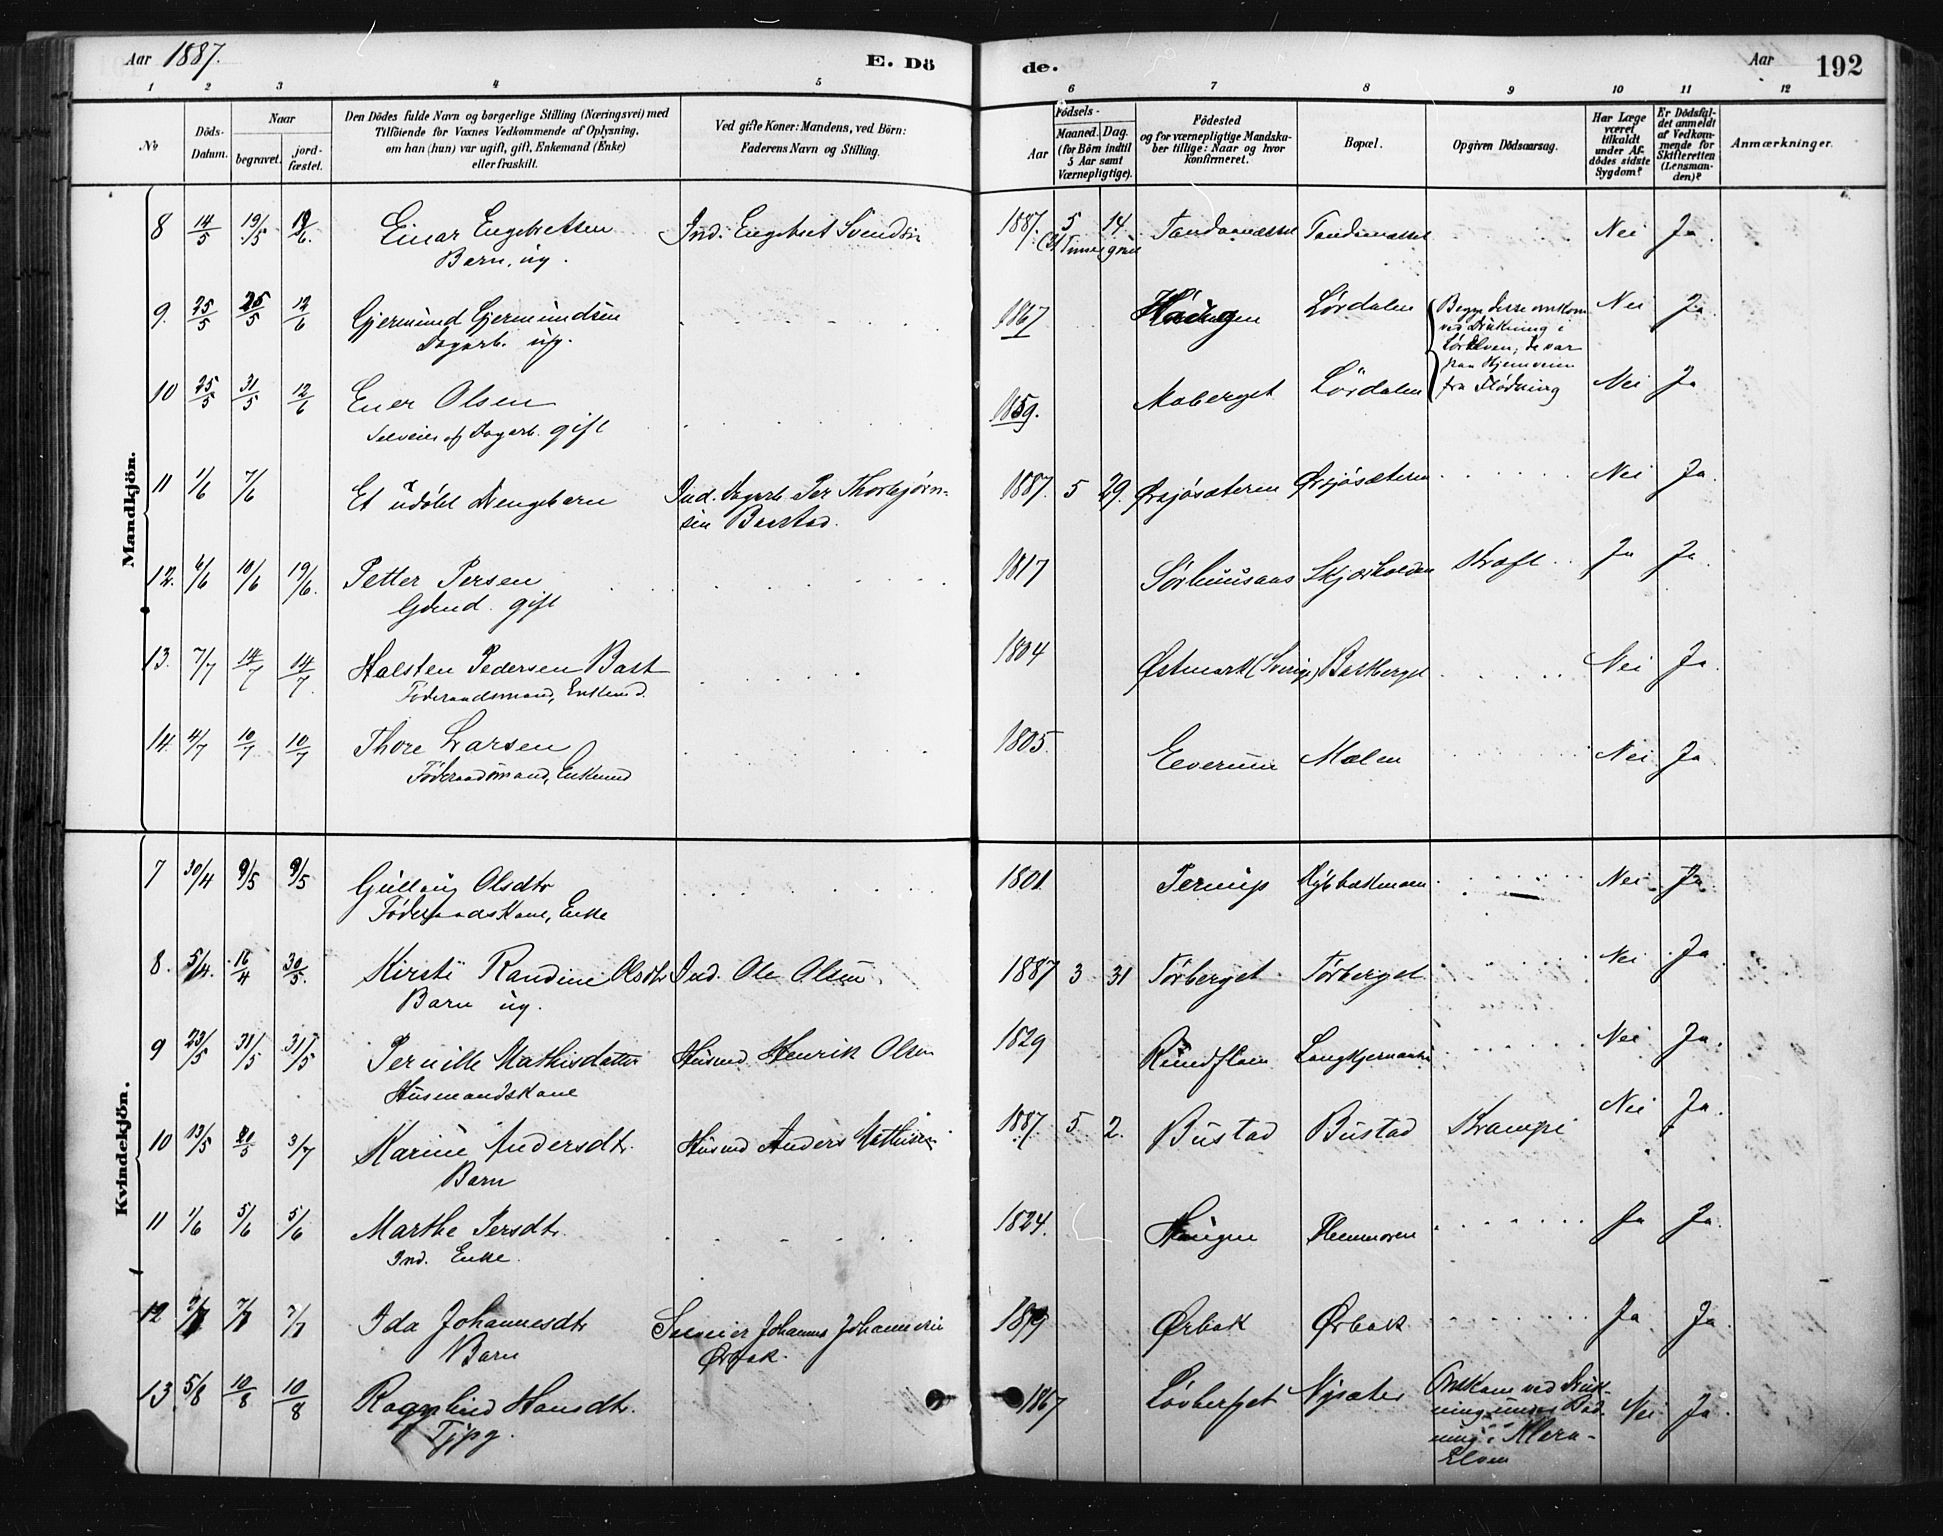 Aar 1887.
E. Dö
de.
Aar
192
1 2 3 4 5
6 7 8 9 10 11 12
No
Döds-
Datum.
Naar
begravet.
jord-
fæstet.
Den Dödes fulde Navn og borgerlige Stilling (Næringsvei) med
Tilföiende for Voxnes Vedkommende af Oplysning,
om han (hun) var ugift, gift, Enkemand (Enke)
eller fraskilt.
Ved gifte Koner: Mandens, ved Börn:
Faderens Navn og Stilling.
Födsels-
Aar
Maaned.
Dag.
(for Börn indtil
5 Aar samt
Værnepligtige).
Födested
og for værnepligtige Mandska-
ber tillige: Naar og hvor
Konfirmeret.
Bopæl.
Opgiven Dödsaarsag.
Har Læge
været
tilkaldt
under Af-
dödes sidste
Sygdom?
Er Dödsfal-
det anmeldt
af Vedkom-
mende for
Skifteretten
(Lensman-
den)?
Anmærkninger.
Mandkjön.
8 14/5 19/5 19/6. Einar Engebretsen Ind. Engebret Svendsen 1887. 5 14. Nei Ja.
Barn, ug.
9. 25/5 25/5 12/6 Gjermund Gjermundsen 1867 Lørdalen Begge disse omkom Nei Ja.
Dagarb. ug.
ved Drukning i
Lørelven; de var
paa Hjemveien
fra Flødning
10 25/5 31/5 12/6 Ener Olsen 1859. Moberget Lördalen Nei Ja
Selveier af Dagarb. gift
11 1/6 7/6 Et udöbt Drengebarn Ind. Dagarb. Per Thorbjørn- 1887. 5 29. Ørsjösæteren Ørsjösæteren Nei Ja.
sen Bustad.
12. 6/6 10/6 19/6. Petter Persen 1817 Sörhuusaas Skjærholden Kræft Ja Ja.
Gbrud. gift
13. 7/7 14/7 14/7. Halsten Pedersen Bast 1804 Østmark (Sverige) Bastberget Nei Ja.
Föderaadsmand, Enkemd.
14. 4/7 10/7 10/7 Thore Larsen 1805. Elverum Mælen Nei Ja.
Föderaadsmand, Enkemd
Kvindekjön.
7 30/4 9/5 9/5 Gullaug Olsdtr 1801 Pernup Nei Ja.
Föderaadskone, Enke
8. 5/4. 16/4 30/5. Kirsti Randine Olsdtr Ind. Ole Olsen 1887 3 31 Törberget Törberget Nei Ja.
Barn ug.
9 23/5 31/5 31/5 Pernille Mathisdatter Husmd Henrik Olsen 1829 Rundfloen Nei Ja.
Husmandskone
10 13/5 20/5 3/7 Karine Andersdtr. Husmd Anders Mathisen 1887. 5 2. Bustad Bustad Krampe Nei Ja.
Barn
11 1/6 5/6 5/6 Marthe Persdtr. 1824. Haugen Plenmoren Ja Ja.
Ind. Enke.
12 7/7 7/7 Ida Johannesdtr Selveier Johannes Johannesen 1879 Ørbak Ørbak Ja Ja.
Barn
Ørbak.
13 5/8 10/8 10/8 Ragnhild Hansdtr. 1867 Lövberget Nysæter Omkom ved Druk- Nei Ja.
Tjpg.
ning under Bad-
ning i Klara-
Elven